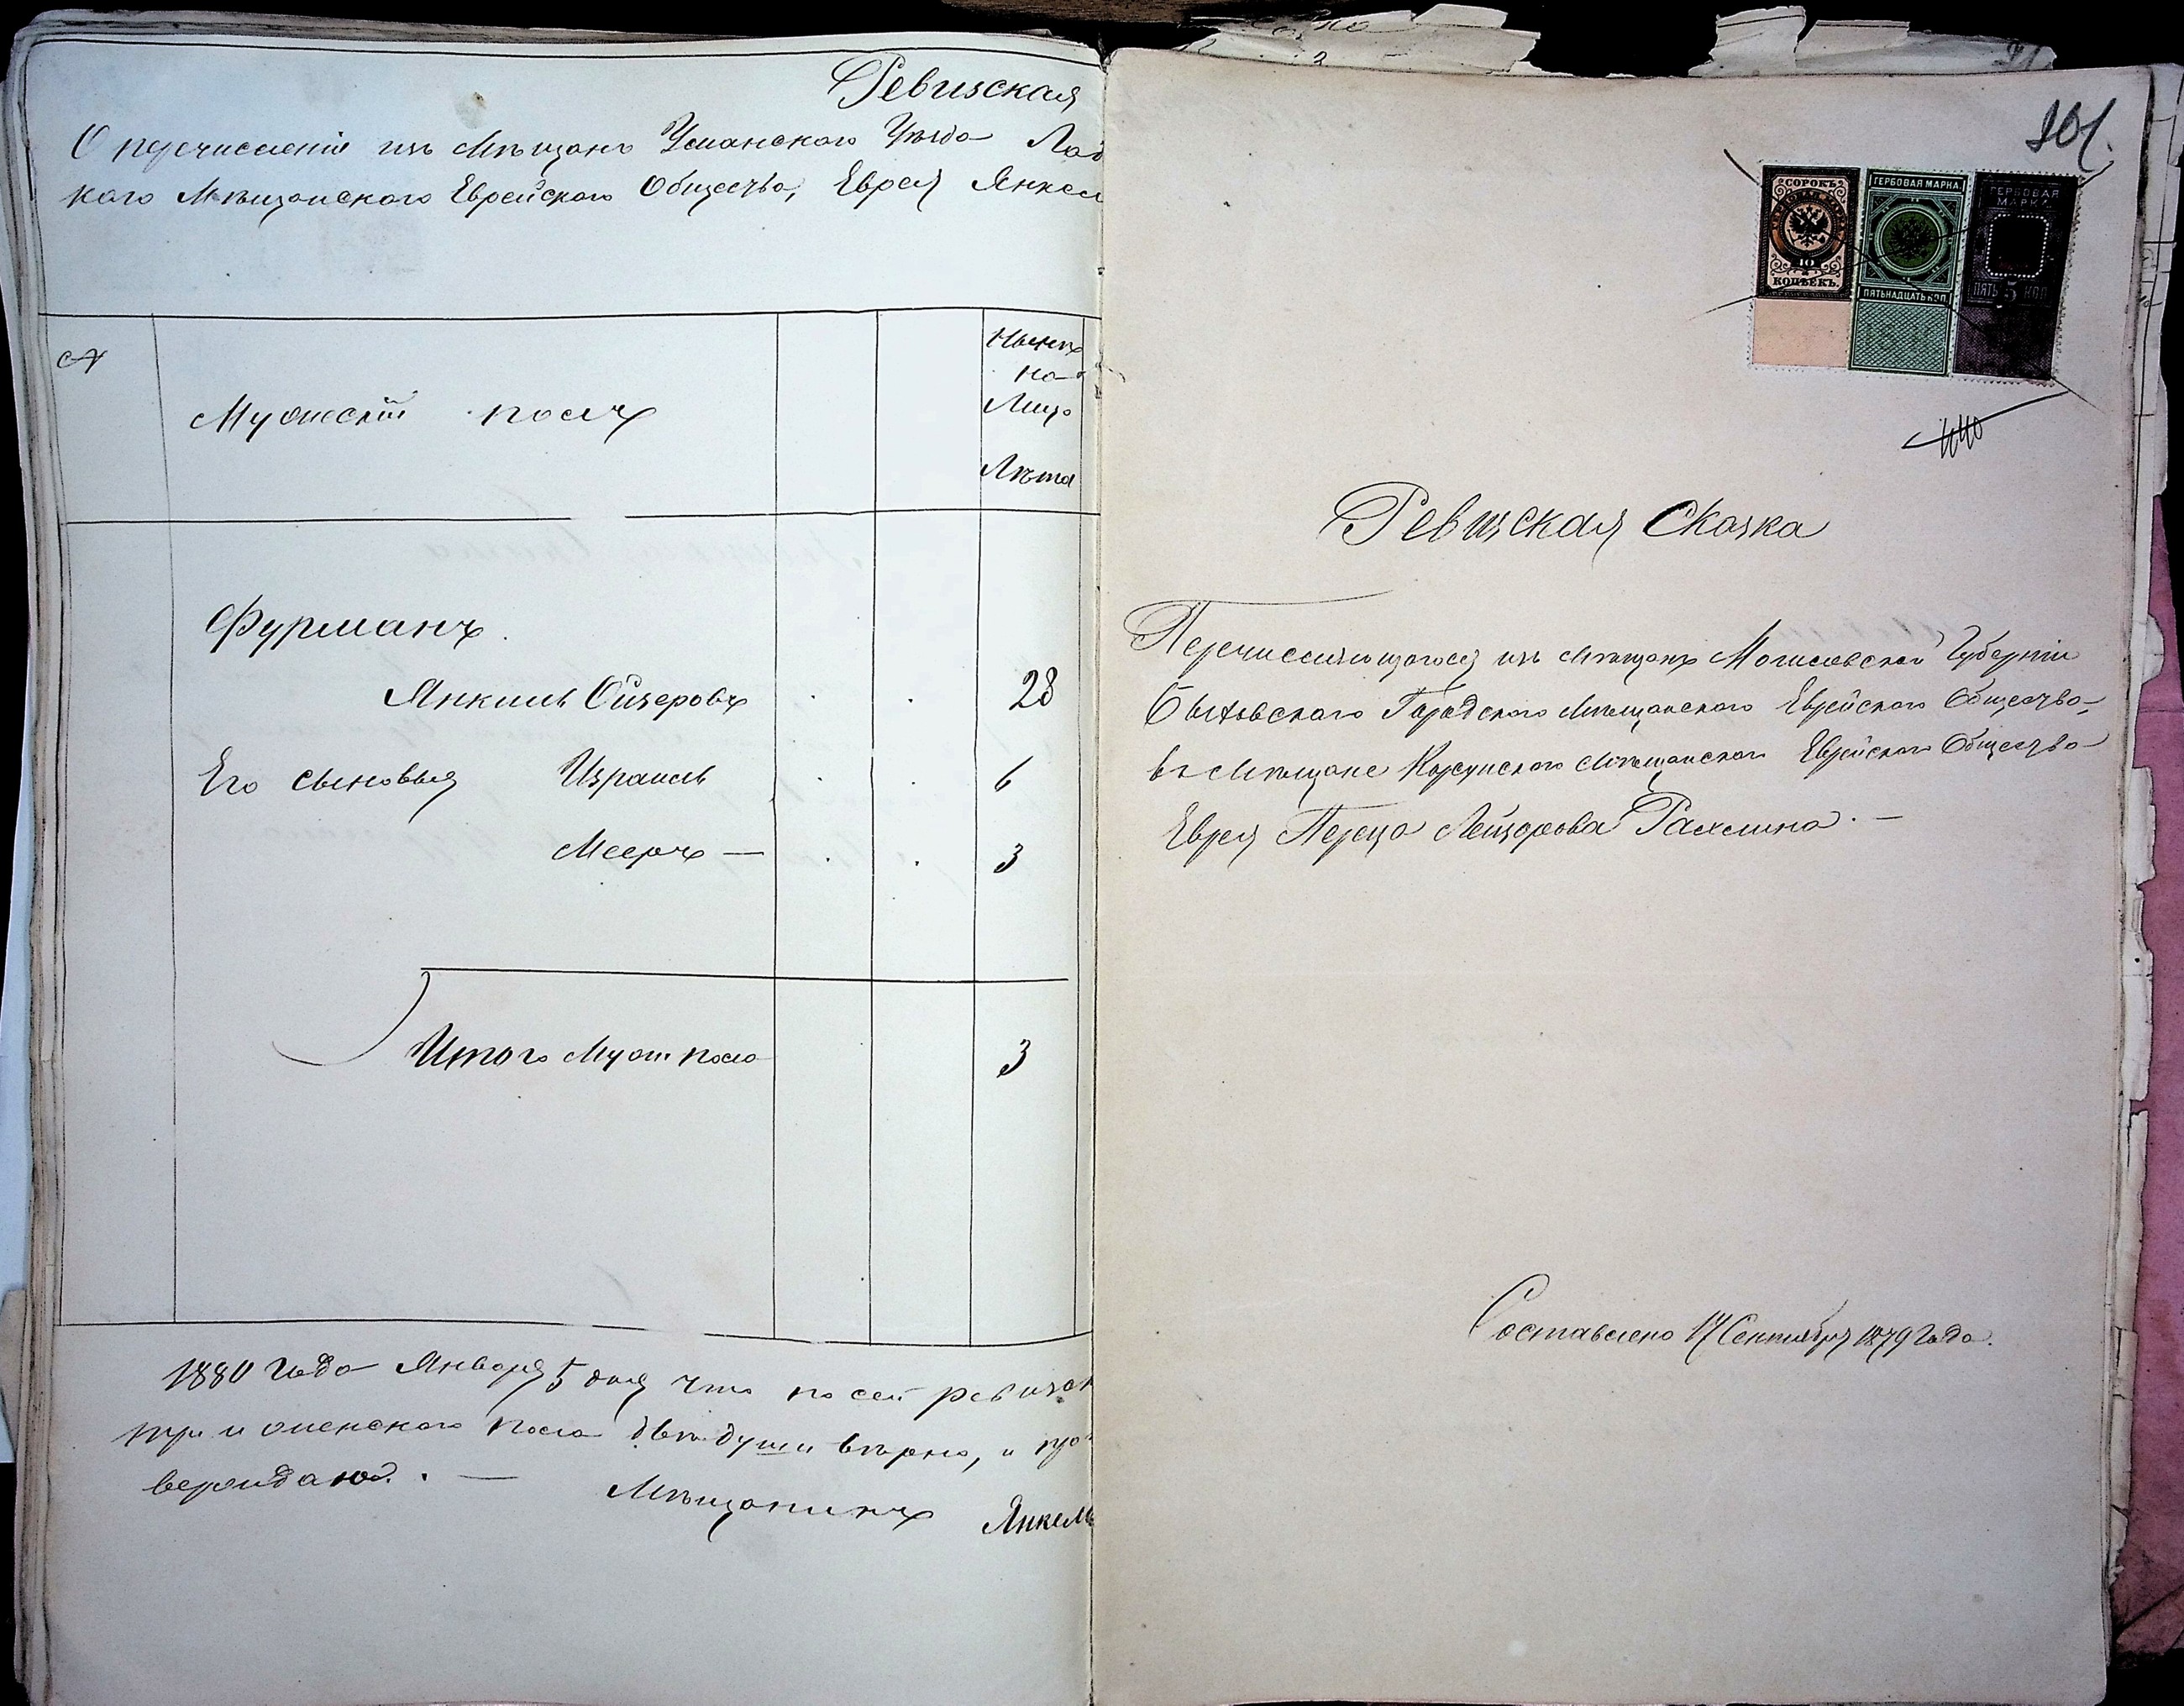 Ревизская
О перечислении изъ Мѣщанъ Уманского Уѣзда
кого Мѣщанского Еврейского Общества, Еврея Янкел
№
Мужескій полъ
Нынѣ
на
Лицо
Лѣта
Фурманъ.
Янкиль Ойзеровъ . . 28
Его сыновья Израиль . . 6
Мееръ — . . 3
Итого Муж пола 3
1880 Года Января 5 дня что по сей ревизск
три и женского пола двѣ души вѣрно, и
верждаю. . —
Мѣщанинъ Янкель
101.
СОРОКЪ
10
КОПѢЕКЪ.
ГЕРБОВАЯ МАРКА.
ПЯТЬНАДЦАТЬ КОП.
ГЕРБОВАЯ
МАРКА
ПЯТЬ 5 КОП
Ревизская Сказка
Перечисляющагося изъ Мѣщанъ Могилевской Губерніи
Быховского Городского Мѣщанского Еврейского Общества,
въ Мѣщане Корсунского Мѣщанского Еврейского Общества
Еврея Переца Лейзорова Рахлина. —
Составлено 17 Сентября 1879 Года.